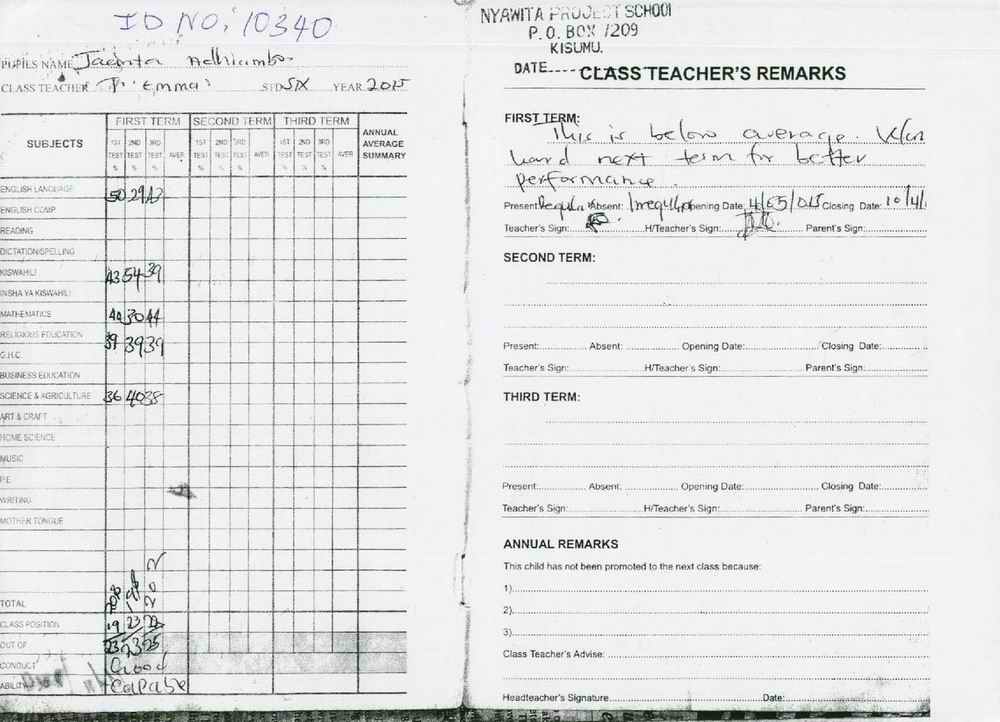 ID NO. 10340
PUPILS NAME Jacinta Adhiambo
CLASS TEACHER Tr Emma STD SIX YEAR 2015
SUBJECTS FIRST TERM SECOND TERM THIRD TERM ANNUAL AVERAGE SUMMARY
1ST TEST % 2ND TEST % 3RD TEST % AVER 1ST TEST % 2ND TEST % 3RD TEST % AVER 1ST TEST % 2ND TEST % 3RD TEST % AVER
ENGLISH LANGUAGE 50 29 43
ENGLISH COMP
READING
DICTATION/SPELLING
KISWAHILI 43 54 39
INSHA YA KISWAHILI
MATHEMATICS 40 30 44
RELIGIOUS EDUCATION 39 39 39
G.H.C.
BUSINESS EDUCATION
SCIENCE & AGRICULTURE 36 40 38
ART & CRAFT
HOME SCIENCE
MUSIC
P.E
WRITING
MOTHER TONGUE
TOTAL 208
CLASS POSITION 19 23 22
OUT OF 23 23 25
CONDUCT Good
ABILITY Capable
NYAWITA PROJECT SCHOOL
P. O. BOX 1209
KISUMU.
DATE
CLASS TEACHER'S REMARKS
FIRST TERM:
This is below average. Work
hard next term for better
performance.
Present: Regular Absent: Irregular Opening Date: 4/05/015 Closing Date: 10/4/
Teacher's Sign: H/Teacher's Sign: Parent's Sign:
SECOND TERM:
Present: Absent: Opening Date: Closing Date:
Teacher's Sign: H/Teacher's Sign: Parent's Sign:
THIRD TERM:
Present: Absent: Opening Date: Closing Date:
Teacher's Sign: H/Teacher's Sign: Parent's Sign:
ANNUAL REMARKS
This child has not been promoted to the next class because:
1)
2)
3)
Class Teacher's Advise:
Headteacher's Signature Date: